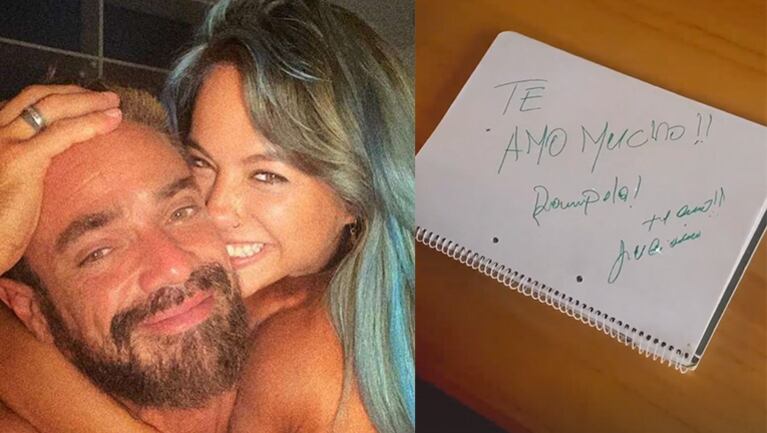 TE
AMO MUCHO!!
Rompela!
te amo!!